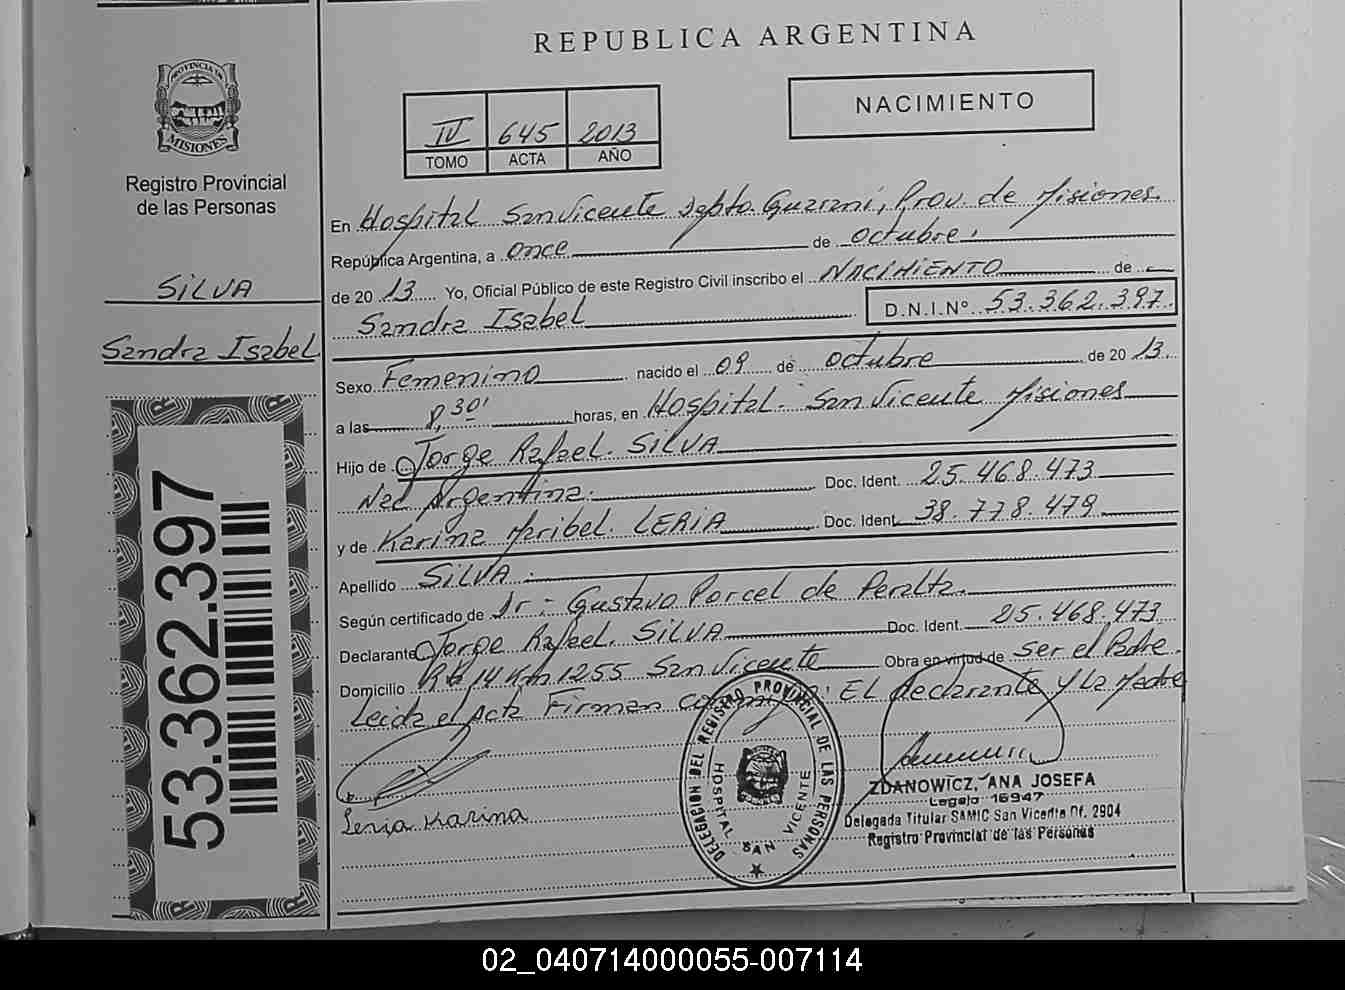 REPUBLICA ARGENTINA
PROVINCIA DE
MISIONES
Registro Provincial
de las Personas
SILVA
Sandra Isabel
53.362.397
IV 645 2013
TOMO ACTA AÑO
NACIMIENTO
En Hospital San Vicente Depto. Guaraní, Prov. de Misiones.
República Argentina, a once de octubre.
de 20 13 Yo, Oficial Público de este Registro Civil inscribo el NACIMIENTO de
Sandra Isabel D.N.I.Nº 53.362.397.
Sexo Femenino nacido el 09 de octubre de 20 13.
a las 8,30' horas, en Hospital. San Vicente Misiones
Hijo de Jorge Rafael. SILVA
Nac Argentina. Doc. Ident. 25.468.473
y de Karina Maribel. LERIA Doc. Ident. 38.778.479
Apellido SILVA.
Según certificado de Dr.- Gustavo Porcel de Peralta.
Declarante Jorge Rafael. SILVA Doc. Ident. 25.468.473
Domicilio R N 14 Km 1255 San Vicente Obra en virtud de ser el Padre.
Leida el Acta Firman conmigo: El declarante y La Madre
Leria Karina
DELEGACION DEL REGISTRO PROVINCIAL DE LAS PERSONAS
HOSPITAL SAN VICENTE
ZDANOWICZ, ANA JOSEFA
Legajo 16947
Delegada Titular SAMIC San Vicente Of. 2904
Registro Provincial de las Personas
02_040714000055-007114